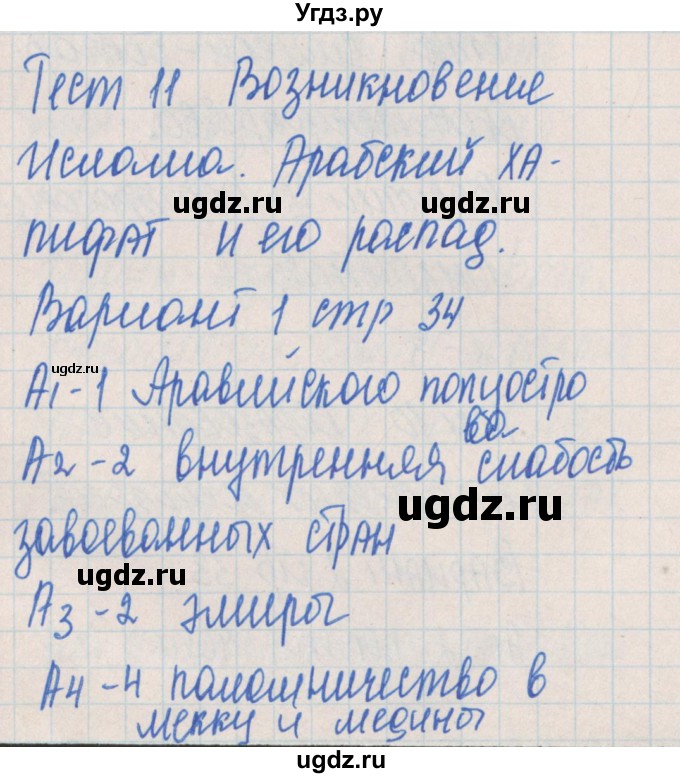 Угдз.ру
Тест 11 Возникновение
Ислама. Арабский ха-
ugdz.ru ugdz.ru
лифат и его распад.
Вариант 1 стр 34
ugdz.ru
А1-1 Аравийского полуостро
ва
А2-2 внутренняя слабость
ugdz.ru
завоеванных стран
ugdz.ru
А3-2 эмиры
А4-4 паломничество в
мекку и медины
ugdz.ru